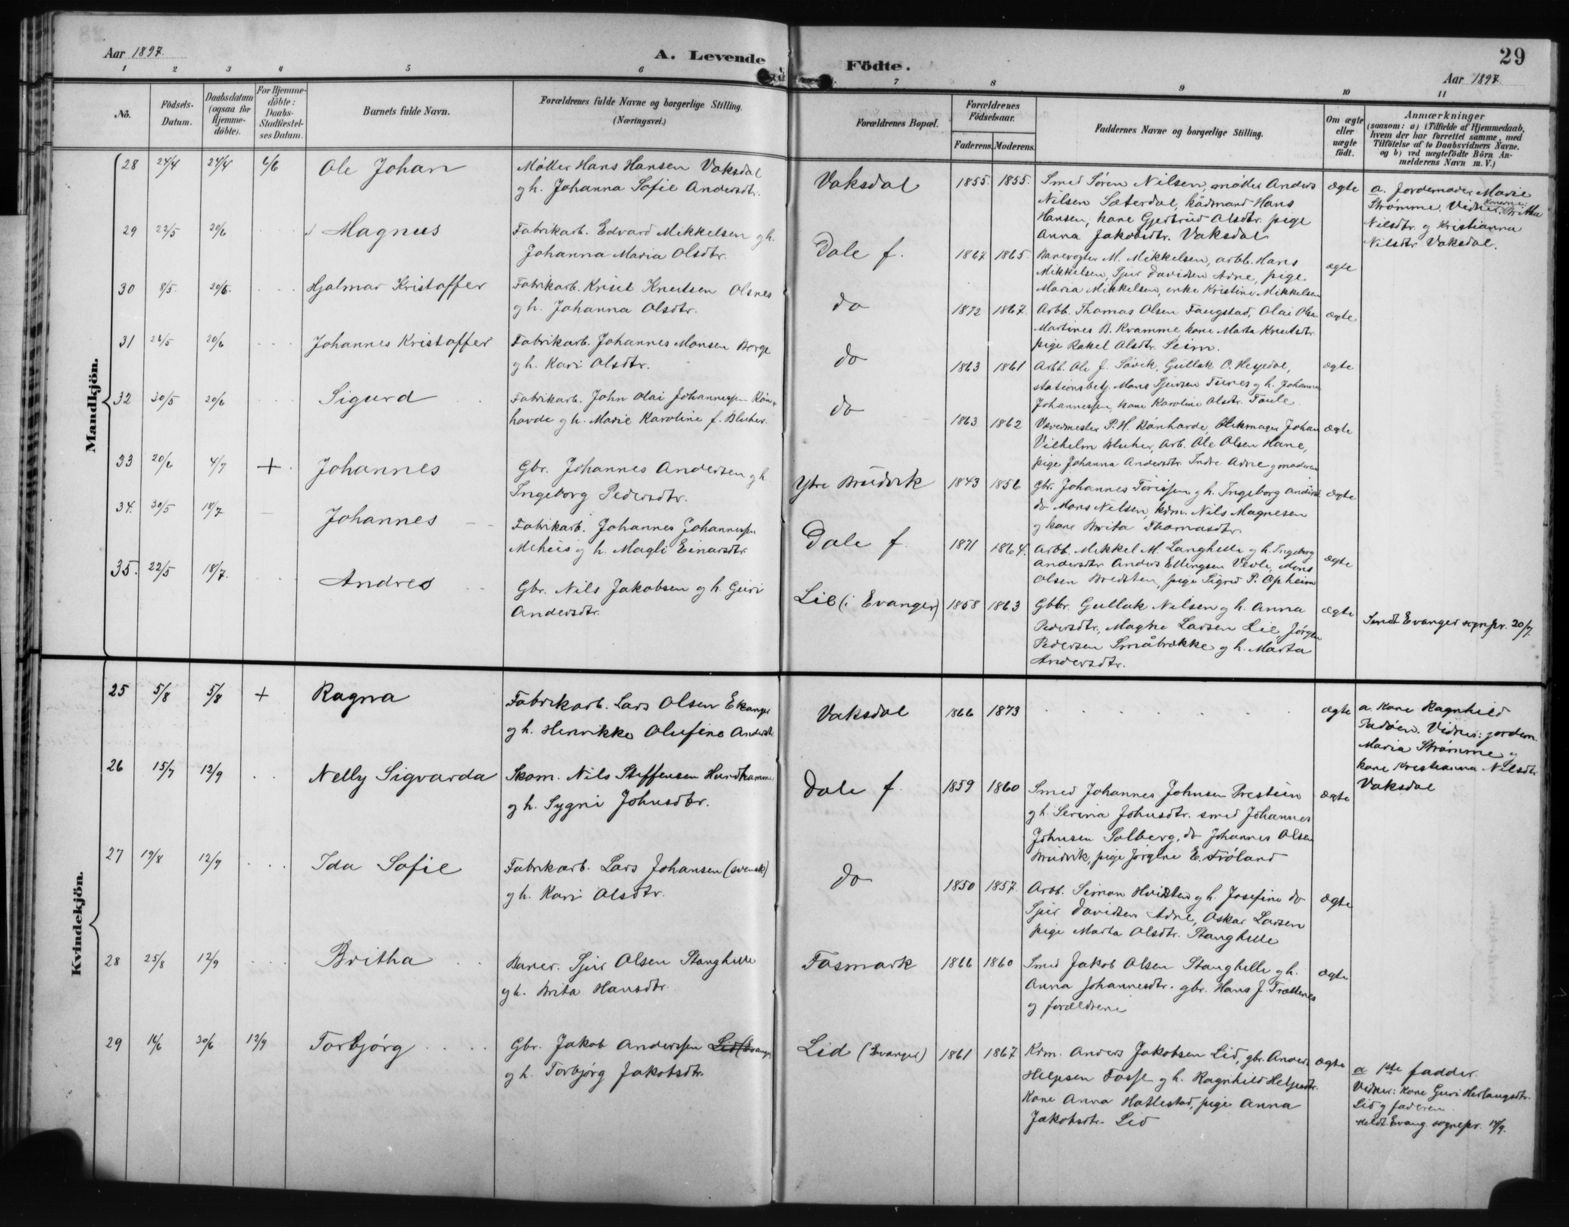 Aar 1897.
A. Levende Födte.
29
Aar 1897.
1 2 3 4 5 6 7 8 9 10 11
No.
Födsels-Datum.
Daabsdatum (ogsaa for Hjemme-döbte).
For Hjemme-döbte: Daabs-Stadfæstel-ses Datum.
Barnets fulde Navn.
Forældrenes fulde Navne og borgerlige Stilling. (Næringsvei.)
Forældrenes Bopæl.
Forældrenes Födselsaar.
Faderens. Moderens.
Faddernes Navne og borgerlige Stilling.
Om ægte eller uægte født.
Anmærkninger
(saasom: a) i Tilfælde af Hjemmedaab, hvem der har forrettet samme, med Tilföielse af to Daabsvidners Navne, og b) ved uægtefödte Börn An-melderens Navn m. V.)
Mandkjön.
28 24/4 24/4 6/6 Ole Johan
Møller Hans Hansen Vaksdal
g h. Johanna Sofie Andersdtr.
Vaksdal 1855. 1855.
Smed Søren Nilsen, møller Anders
Nilsen Sæterdal, kådmand Hans
Hansen, kone Gjertrud Olsdtr. pige
Anna Jakobsdtr. Vaksdal
ægte
a. Jordemoder Marie
Strømme. Vidner: Konerne Britha
Nilsdtr. og Kristianna
Nilsdtr. Vaksdal.
29 22/5 20/6 Magnus
Fabrikarb. Edvard Mikkelsen g h.
Johanna Maria Olsdtr.
Dale f. 1867 1865.
Banevogter M. Mikkelsen, arbb. Hans
Mikkelsen, Sjur Davidsen Adne, pige
Maria Mikkelsen, enke Kristine Mikkelsen
ægte
30 8/5 20/6 Hjalmar Kristoffer
Fabrikarb. Knut Knutsen Olsnes
g h. Johanna Olsdtr.
do 1872 1867.
Arbb. Thomas Olsen Faugstad, Olai Olsen
Martines B. Kvamme kone Marta Knutsdtr.
pige Rakel Olsdtr. Seim.
ægte
31 20/6 Johannes Kristoffer
Fabrikarb. Johannes Monsen Berge
g h. Kari Olsdtr.
do 1863 1861
Arbb. Ole J. Søvik, Gullak O. Helgedal,
stationsbetj. Mons Sjursen Furnes g h. Johanna
Johannessen, kone Karoline Olsdtr. Foule
ægte
32 30/5 20/6 Sigurd
Fabrikarb. John Olai Johannessen Kån-
harde g h. Marie Karoline f. Bluher.
do 1863 1862
Vævemester P. H. Kånharde, Blikmager Johan
Vilhelm Bluher, Arb. Ole Olsen Hane,
pige Johanna Andersdtr. Indre Adne g moderen
ægte
33 20/6 4/7 + Johannes
Gbr. Johannes Andersen g h
Ingeborg Pedersdtr.
Ytre Bruvik 1843 1856
Gbr. Johannes g h. Ingeborg Andersd.
do Mons Nilsen, kdm. Nils Magnesen
g kone Brita Thomasdtr.
ægte
34. 30/5 18/7 Johannes
Fabrikarb. Johannes Johannessen
Mehus g h. Magli Einarsdtr.
Dale f. 1871 1864.
Arbb. Mikkel M. Langhelle g h. Ingeborg
Andersdtr. Anders Ellingsen Vevle, Mons
Olsen Bredsten, pige Sigrid P. Opheim
ægte
35. 22/5 18/7. Andres
Gbr. Nils Jakobsen g h. Guri
Andersdtr.
Lie (i Evanger) 1858 1863
Gbbr. Gullak Nilsen g h. Anna
Pedersdtr., Magne Larsen Lie, Jørgen
Pedersen Småbrekke g h. Marta
Andersdtr.
ægte
Sendt Evanger sognepr. 20/7
Kvindekjön.
25 5/8 5/8 + Ragna
Fabrikarb. Lars Olsen Ekanger
g h. Henrikke Olufine Andersdtr.
Vaksdal 1866 1873
ægte
a. kone Ragnhild
Vidner: jordem.
Maria Strømme g
kone Kristianna Nilsdtr.
Vaksdal
26 15/7 12/9 Nelly Sigvarda
Skom. Nils Steffensen Hundhammer
g h. Sygni Johnsdtr.
Dale f. 1859 1860
Smed Johannes Johnsen Prestun
g h. Serina Johnsdtr. smed Johannes
Johnsen Solberg, do Johannes Olsen
Bruvik, pige Jørgine E. Frøland
ægte
27 19/8 12/9 Ida Sofie
Fabrikarb. Lars Johansen (svensk)
g h. Kari Olsdtr.
do 1850 1857.
Arbb. Simon Hvidsten g h. Josefine do
Sjur Davidsen Adne, Oskar Larsen
pige Marta Olsdtr. Stanghelle
ægte
28 25/8 12/9 Britha
Baner. Sjur Olsen Stanghelle
g h. Brita Hansdtr.
Fosmark 1866 1860
Smed Jakob Olsen Stanghelle g h.
Anna Johannesdtr. gbr. Hans J. Trættenes
g forældrene
ægte
29 14/6 20/6 12/9 Torbjørg
Gbr. Jakob Anderssen Lid (Evanger
g h. Torbjørg Jakobsdtr.
Lid (Evanger) 1861 1867
Kdm. Anders Jakobsen Lid, gbr. Anders
Helgesen Fosse g h. Ragnhild Helgesdtr.
Kone Anna Hatlestad, pige Anna
Jakobsdtr. Lid
ægte
a 1ste fadder.
Vidner: kone Guri Herlaugsdtr.
Lid g faderen
meldt Evang. sognepr. 14/9.